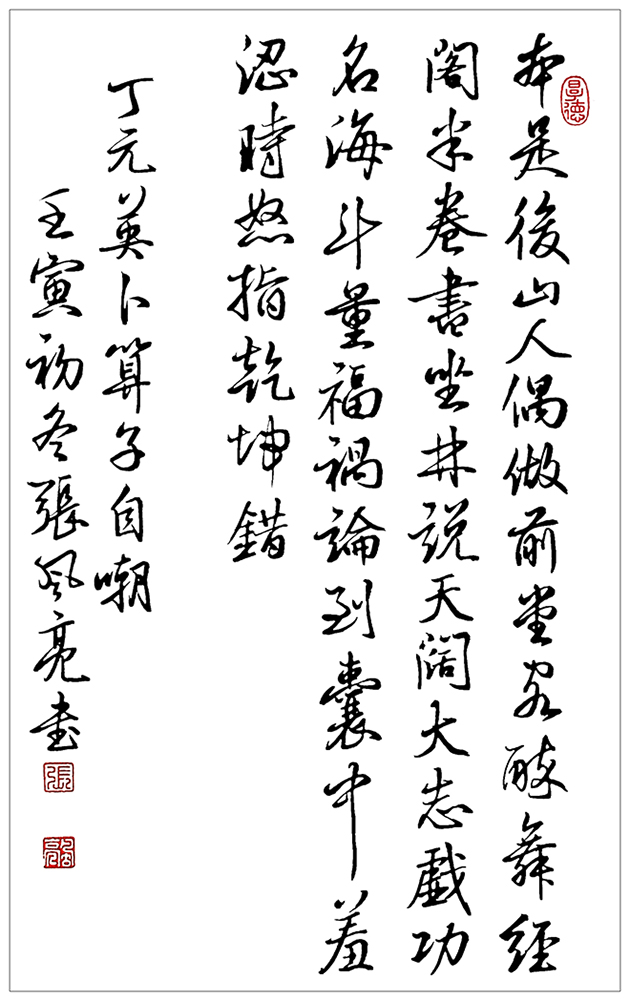 本是後山人偶做前堂客醉舞經
閣半卷書坐井説天闊大志戲功
名海斗量福禍論到囊中羞
涩時怒指乾坤錯
丁元英卜算子自嘲
壬寅初冬張風亮書
昌德
張